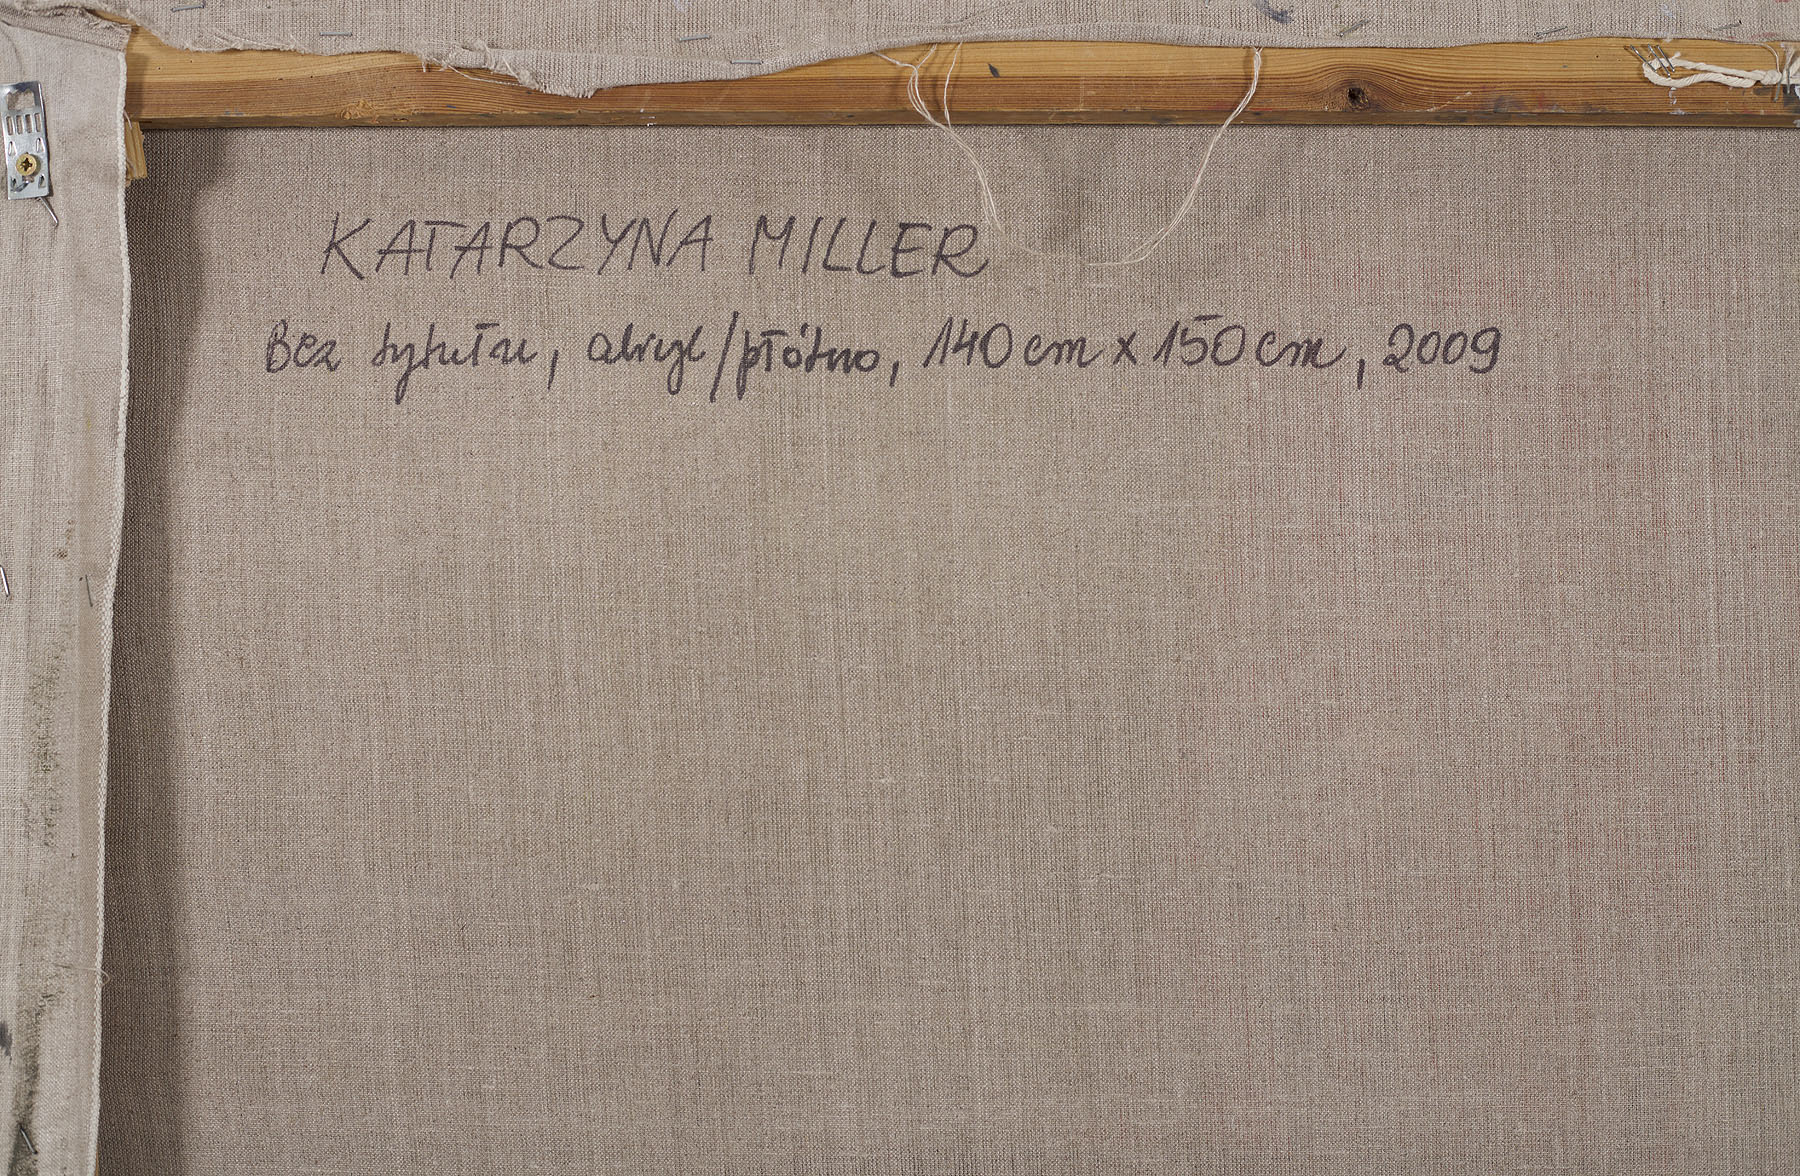 KATARZYNA MILLER
Bez tytułu, akryl/płótno, 140 cm x 150 cm, 2009